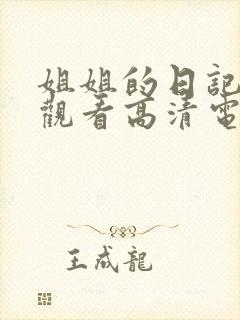 姐姐的日記
觀看高清電
王成龍